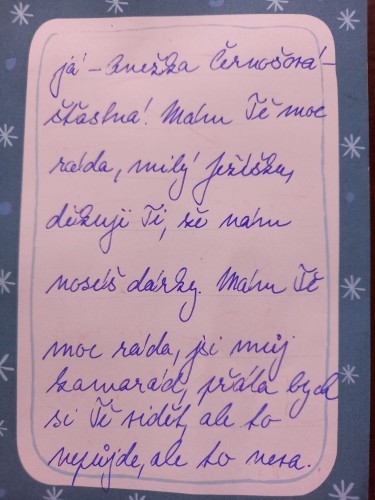 já – Anežka Černošová –
šťastná! Mám Tě moc
ráda, milý Ježíšku,
děkuji Ti, že nám
nosíš dárky. Mám Tě
moc ráda, jsi můj
kamarád, přála bych
si Tě vidět, ale to
nepůjde, ale to neva.